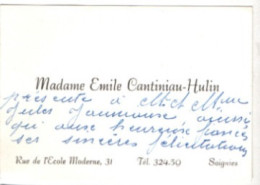 Madame Emile Cantiniau-Hulin
présente à M et Mme
Jules
qui aux heureux
ses sincères félicitations
Rue de l'Ecole Moderne, 31 Tél. 324.50 Soignies